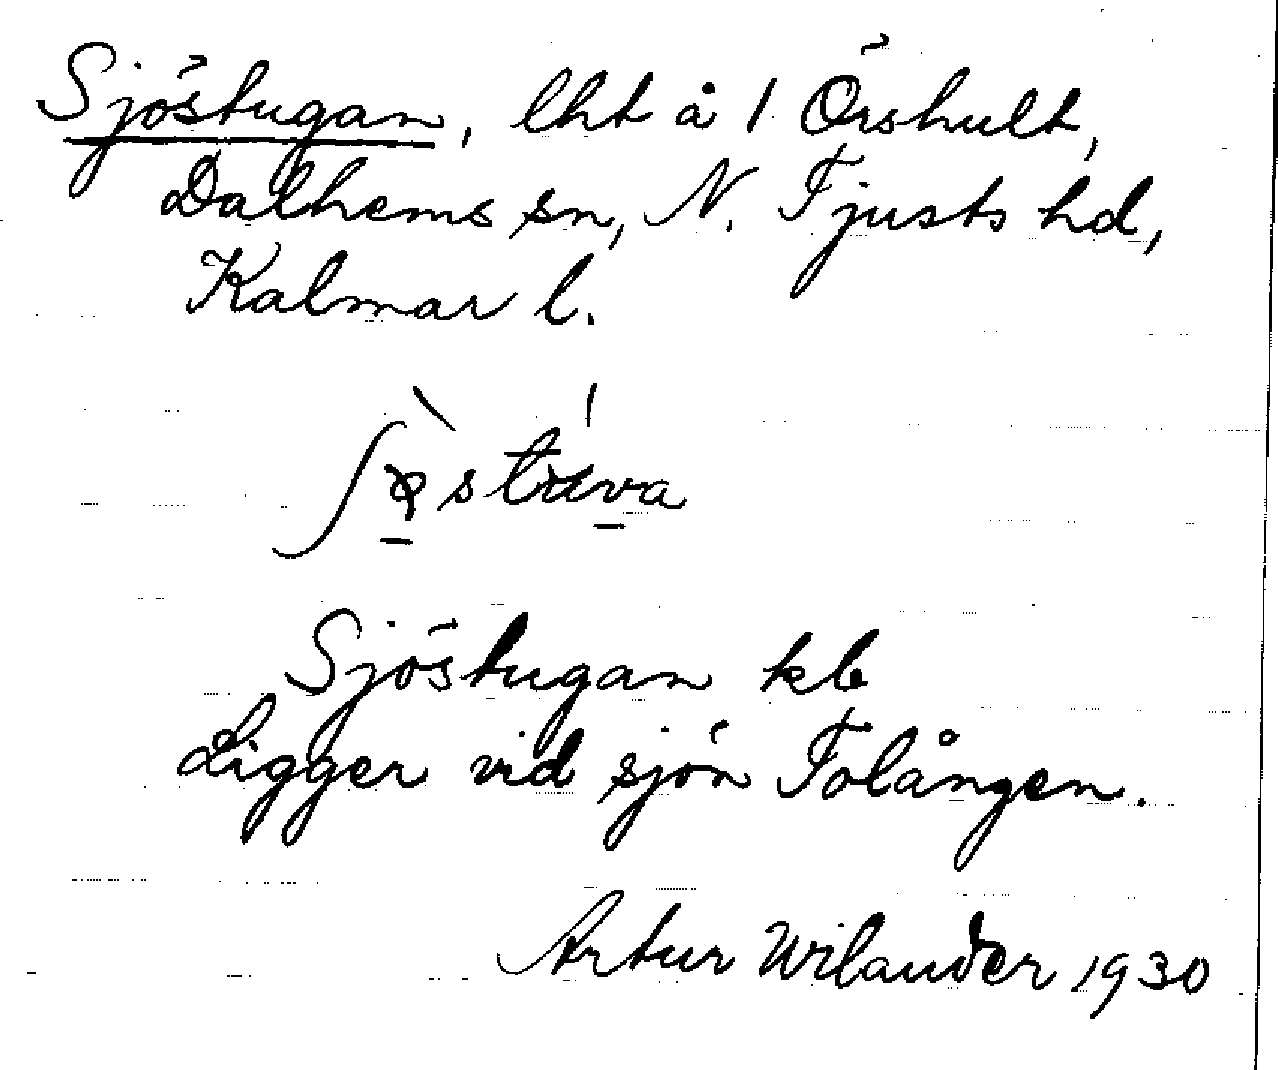 Sjöstugan, lht å 1 Örshult,
Dalhems sn, N. Tjusts hd,
Kalmar l.
Sjöstugan kb
Ligger vid sjön Tolången.
Artur Wilander 1930